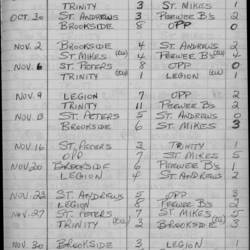 TRINITY 3 ST. MIKES 1
OCT. 30 ST. ANDREWS 3 PEEWEE B's 2
BROOKSIDE 8 OPP 0
NOV. 2 BROOKSIDE 4 ST. ANDREWS 2
ST. MIKES 4 PEEWEE B's 4
NOV. 6 ST. PETERS 8 OPP 0
TRINITY LEGION 1
NOV. 9 LEGION 7 OPP 2
TRINITY 11 PEEWEE B's 2
NOV. 13 ST. PETERS 5 ST. ANDREWS 0
BROOKSIDE 6 ST. MIKES 3
NOV. 16 ST. PETERS 3 TRINITY 1
OPP 7 ST. MIKES 5
NOV 20 BROOKSIDE 6 PEEWEE B's 1
LEGION 4 ST. ANDREWS 2
NOV. 23 ST. ANDREWS 5 OPP 3
LEGION 8 PEEWEE B's 2
NOV. 27 ST. PETERS 7 ST. MIKES 5
TRINITY 2 BROOKSIDE 3
NOV. 30 BROOKSIDE 3 LEGION